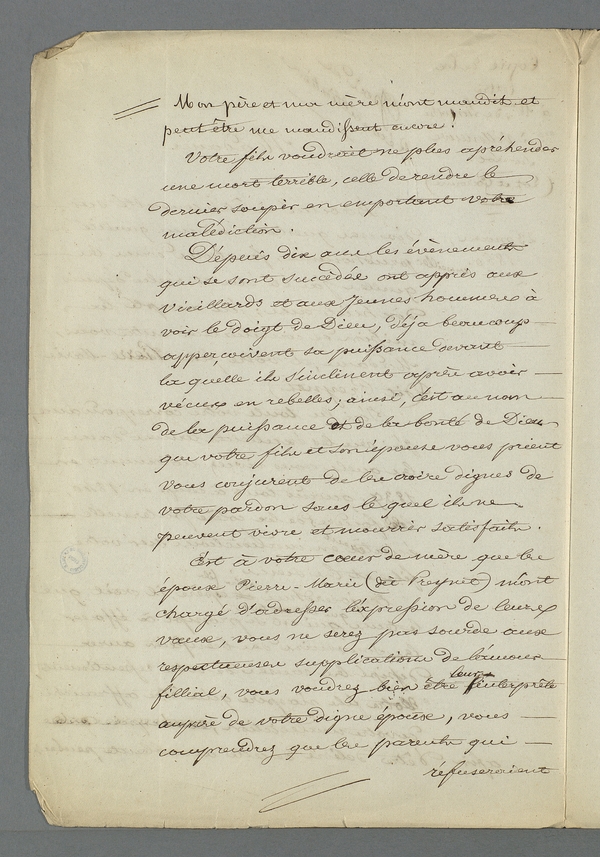 Mon père et ma mère m'ont maudit et
peut être me maudissent encore!
Votre fils voudrait ne plus apréhender
une mort terrible, celle de rendre le
dernier soupir en emportant votre
malédiction.
Dépuis dix ans les évènements
qui se sont succédés ont appris aux
vieillards et aux jeunes hommes à
voir le doigt de Dieu, déja beaucoup
apperçoivent sa puissance devant
la quelle ils s'inclinent après avoir
vécus en rebelles; ainsi, c'est au nom
de la puissance et de la bonté de Dieu
que votre fils et son épouse vous prient
vous conjurent de les croire dignes de
votre pardon sans le quel ils ne
peuvent vivre et mourrir satisfaits.
C'est à votre cœur de mère que les
époux Pierre-Marie (dit Preynet) m'ont
chargé d'adresser l'expression de leurs
vœux, vous ne serez pas sourde aux
respectueuses supplications de l'amour
fillial, vous voudrez bien être leur interprète
auprès de votre digne époux, vous
comprendrez que les parents qui
réfuseraient